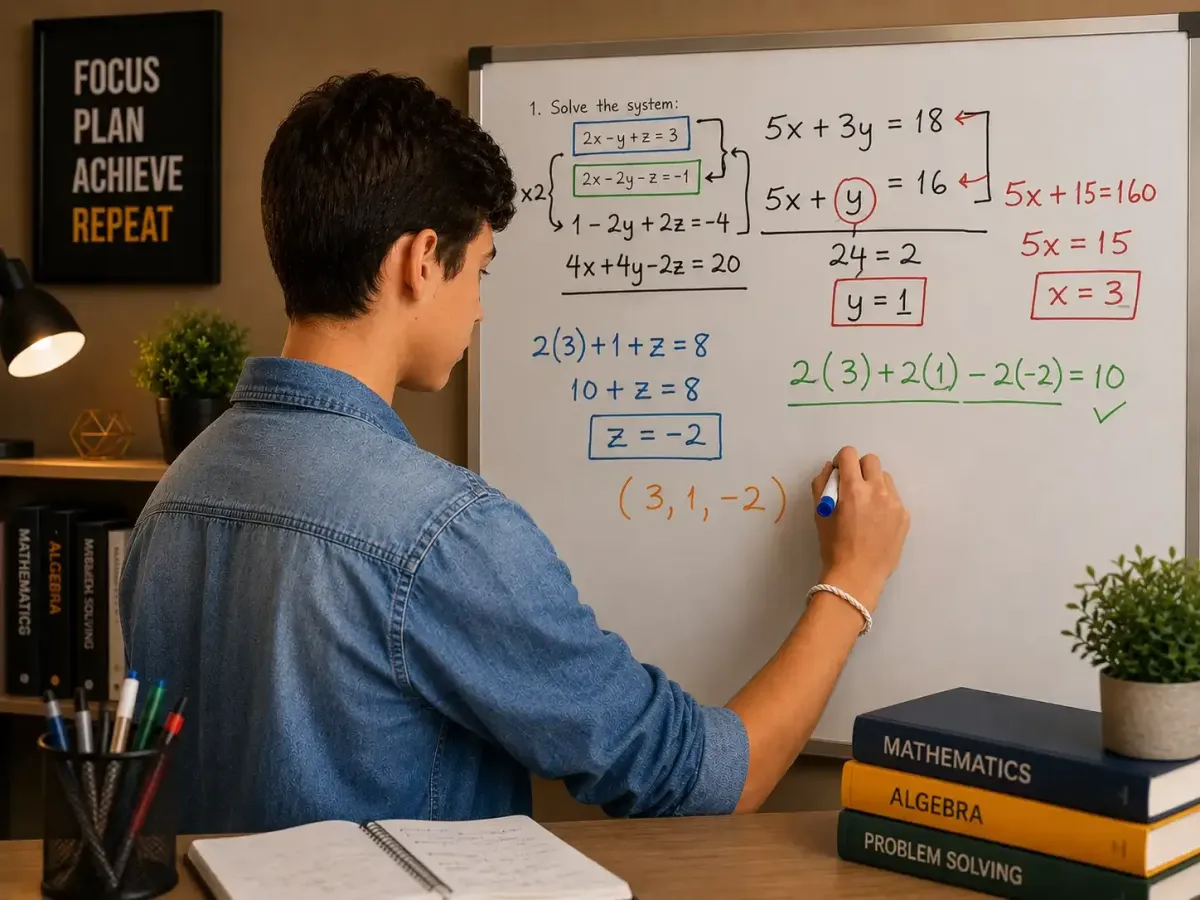 FOCUS
PLAN
ACHIEVE
REPEAT
1. Solve the system:
2x - y + z = 3
2x - 2y - z = -1
x2
1 - 2y + 2z = -4
4x + 4y - 2z = 20
5x + 3y = 18
5x + y = 16
24 = 2
y = 1
5x + 15 = 160
5x = 15
x = 3
2(3) + 1 + z = 8
10 + z = 8
z = -2
2(3) + 2(1) - 2(-2) = 10
✓
(3, 1, -2)
MATHEMATICS
ALGEBRA
SOLVING
MATHEMATICS
ALGEBRA
PROBLEM SOLVING